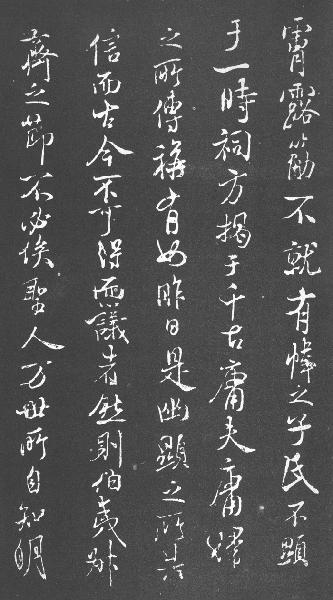 霄露筋不就有幃之子氏不顯
于一時祠方揭于千古庸夫庸
之所傳稱有如昨日是幽顯之所共
信而古今不可得而議者然則伯夷叔
齊之節不必俟聖人万世所自知明